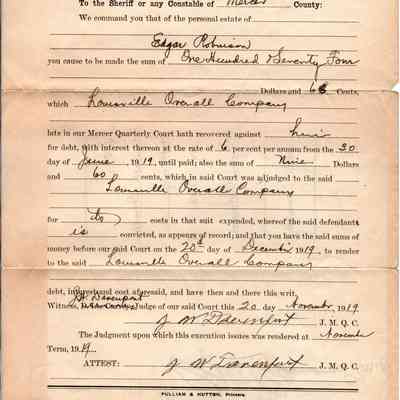 To the Sheriff or any Constable of Mercer County:
We command you that of the personal estate of
Edgar Robinson
you cause to be made the sum of One Hundred & Seventy Four
Dollars and 68 Cents,
which Louisville Overall Company
late in our Mercer Quarterly Court hath recovered against him
for debt, with interest thereon at the rate of 6 per cent per annum from the 30
day of June 1919, until paid; also the sum of Nine Dollars
and 60 cents, which in said Court was adjudged to the said
Louisville Overall Company
for its costs in that suit expended, whereof the said defendant
is convicted, as appears of record; and that you have the said sums of
money before our said Court on the 20th day of December 1919, to render
to the said Louisville Overall Company
debt, interest and cost aforesaid, and have then and there this writ.
J. W. Davenport
Witness, Judge of our said Court this 20 day November, 1919
J W Davenport J. M. Q. C.
The Judgment upon which this execution issues was rendered at November
Term, 1919.
ATTEST: J W Davenport J. M. Q. C.
PULLIAM & HUTTON, Printers